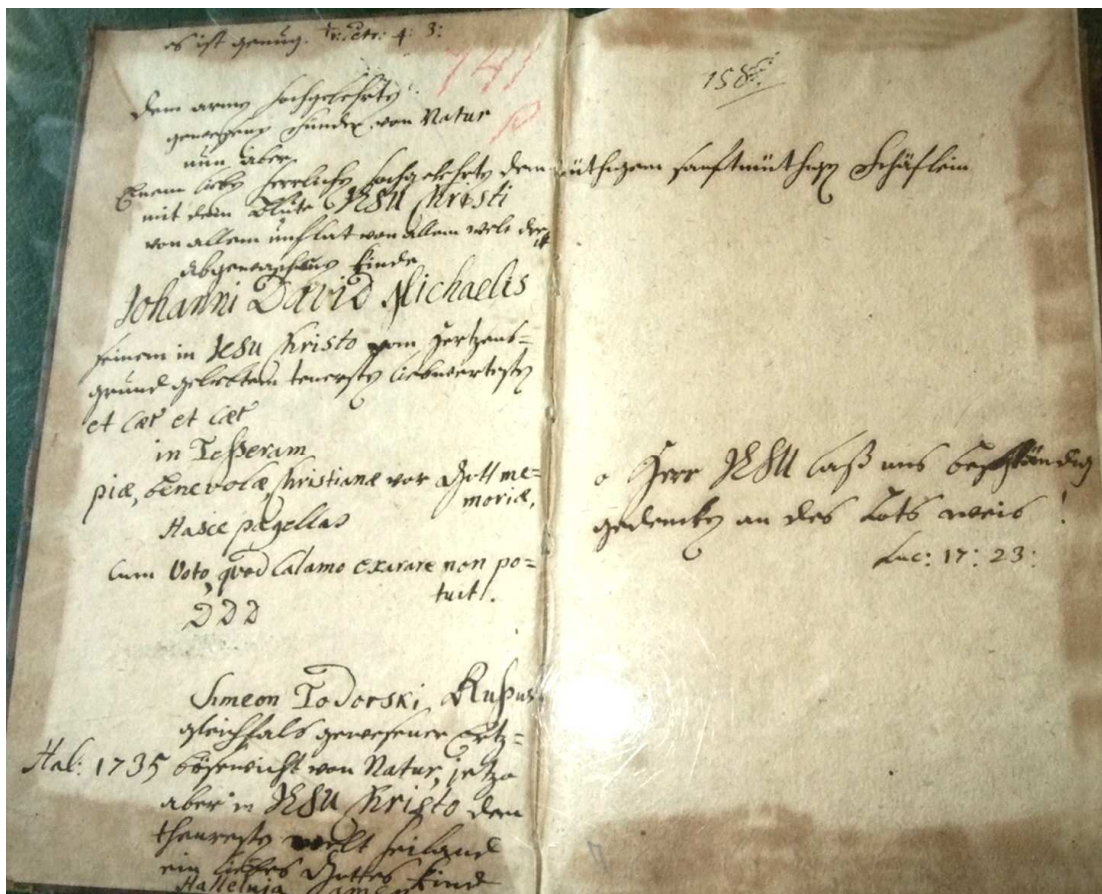 es ist genug. 1. Petr: 4: 3:
741
Dem armen hochgelehrten
gewesenen Sünder von Natur
nun aber
Einem lieben herrlichen hochgelehrten demüthigem sanftmüthigen Schäflein
mit dem Blute JESU Christi
von allem unflat von allem welt
abgewaschenen Kinde
Johanni David Michaelis
seinem in JESU Christo vom Hertzens=
grund geliebtem teuersten liebwertesten
et cæt et cæt
in Teßeram
piæ, benevolæ, Christianæ vor Gott me=
moriæ,
Hasce pagellas
Cum Voto, quod Calamo exarare non po=
tuit!
DDD
Simeon Todorski Rußus
gleichfals gewesener Ertz=
Hal: 1735 bösewicht von Natur, jetzo
aber in JESU Christo dem
theuresten welt heiland
ein liebes Gottes Kind
Halleluja Amen
158
o Herr JESU laß uns beständig
gedencken an des Lots weib!
Luc: 17: 23: